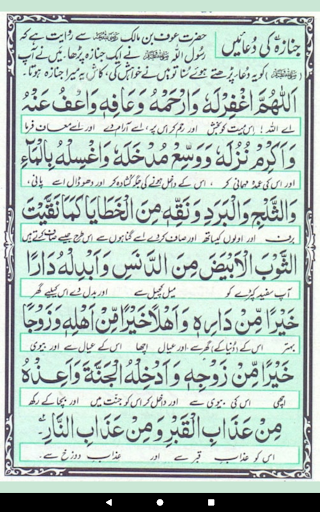 جنازہ کی دُعائیں
حضرت عوف بن مالک ؓ سے روایت ہے کہ
رسول اللہ ﷺ نے ایک جنازہ پڑھا۔ میں نے آپ
(ﷺ) کو یہ دُعا پڑھتے ہوئے سُنا تو میں نے خواہش کی، کاش یہ میرا جنازہ ہوتا۔
اَللّٰهُمَّ اغْفِرْلَهٗ وَارْحَمْهُ وَعَافِهٖ وَاعْفُ عَنْهُ
اے اللہ! اس میت کو بخش اور رحم کر اس پر، اسے آرام دے اور اسے معاف فرما
وَاَكْرِمْ نُزُلَهٗ وَوَسِّعْ مُدْخَلَهٗ وَاغْسِلْهُ بِالْمَآءِ
اور اس کی عمدہ مہمانی کر، اس کے داخل ہونے کی جگہ کشادہ کر اور دھو ڈال اسے پانی،
وَالثَّلْجِ وَالْبَرَدِ وَنَقِّهٖ مِنَ الْخَطَايَا كَمَا نَقَّيْتَ
برف اور اولوں کیساتھ اور صاف کر دے اسے گناہوں سے اس طرح جیسے صاف کرتے ہیں
الثَّوْبَ الْاَبْيَضَ مِنَ الدَّنَسِ وَاَبْدِلْهُ دَارًا
آپ سفید کپڑے کو میل کچیل سے اور بدل دے اس کیلئے گھر
خَيْرًا مِّنْ دَارِهٖ وَاَهْلًا خَيْرًا مِّنْ اَهْلِهٖ وَزَوْجًا
بہتر اس کے (دنیا کے) گھر سے، اور عیال اچھا اس کے عیال سے اور بیوی
خَيْرًا مِّنْ زَوْجِهٖ وَاَدْخِلْهُ الْجَنَّةَ وَاَعِذْهُ
اچھی اس کی بیوی سے اور داخل کر اس کو جنت میں اور بچا کے رکھ
مِنْ عَذَابِ الْقَبْرِ وَمِنْ عَذَابِ النَّارِ
اس کو عذاب قبر سے اور عذاب دوزخ سے۔